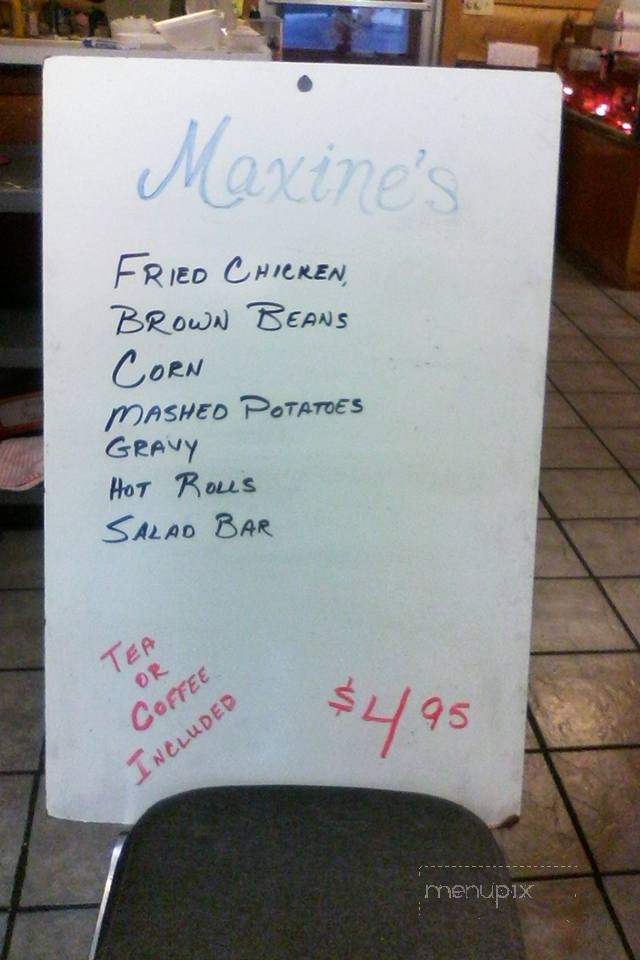 Maxine's
FRIED CHICKEN,
BROWN BEANS
CORN
MASHED POTATOES
GRAVY
HOT ROLLS
SALAD BAR
TEA
OR
COFFEE
INCLUDED
$4 95
menupix